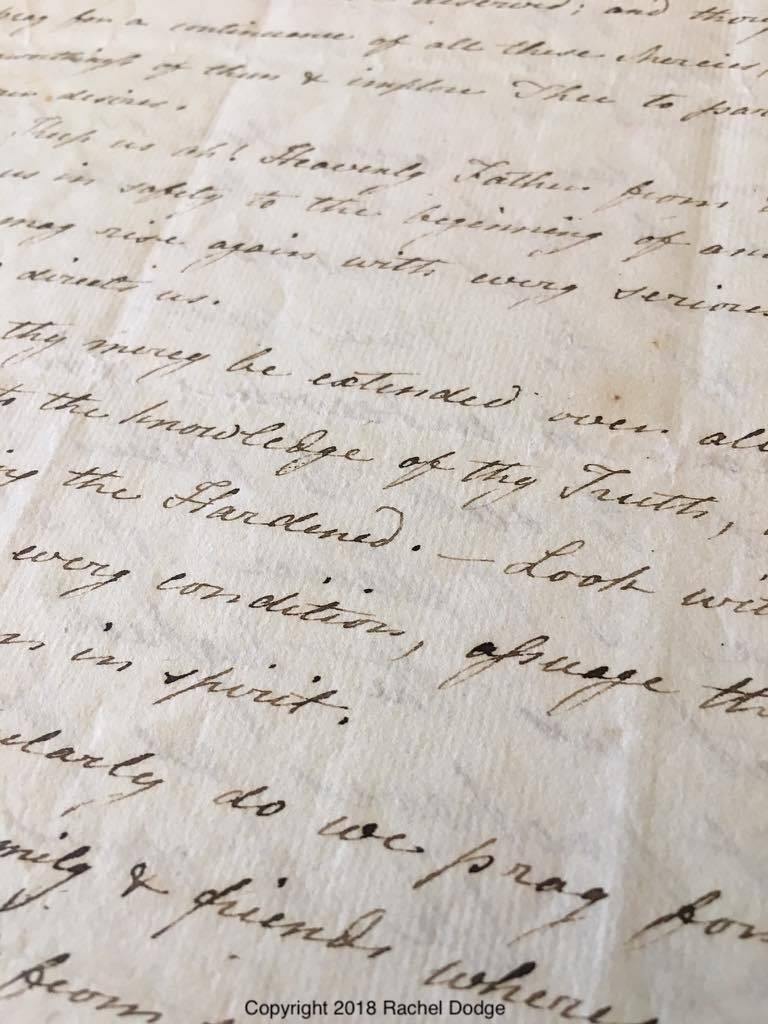 deserved; and thou
for a continuance of all these Mercies,
of them & implore Thee to par
desires.
Keep us oh! Heavenly Father from
us in safety to the beginning of an
may rise again with every seriou
direct us.
thy mercy be extended over all
to the knowledge of thy Truth,
the Hardened. — Look wit
every condition, assuage th
in spirit.
ularly do we pray for
mily & friends where
from
Copyright 2018 Rachel Dodge